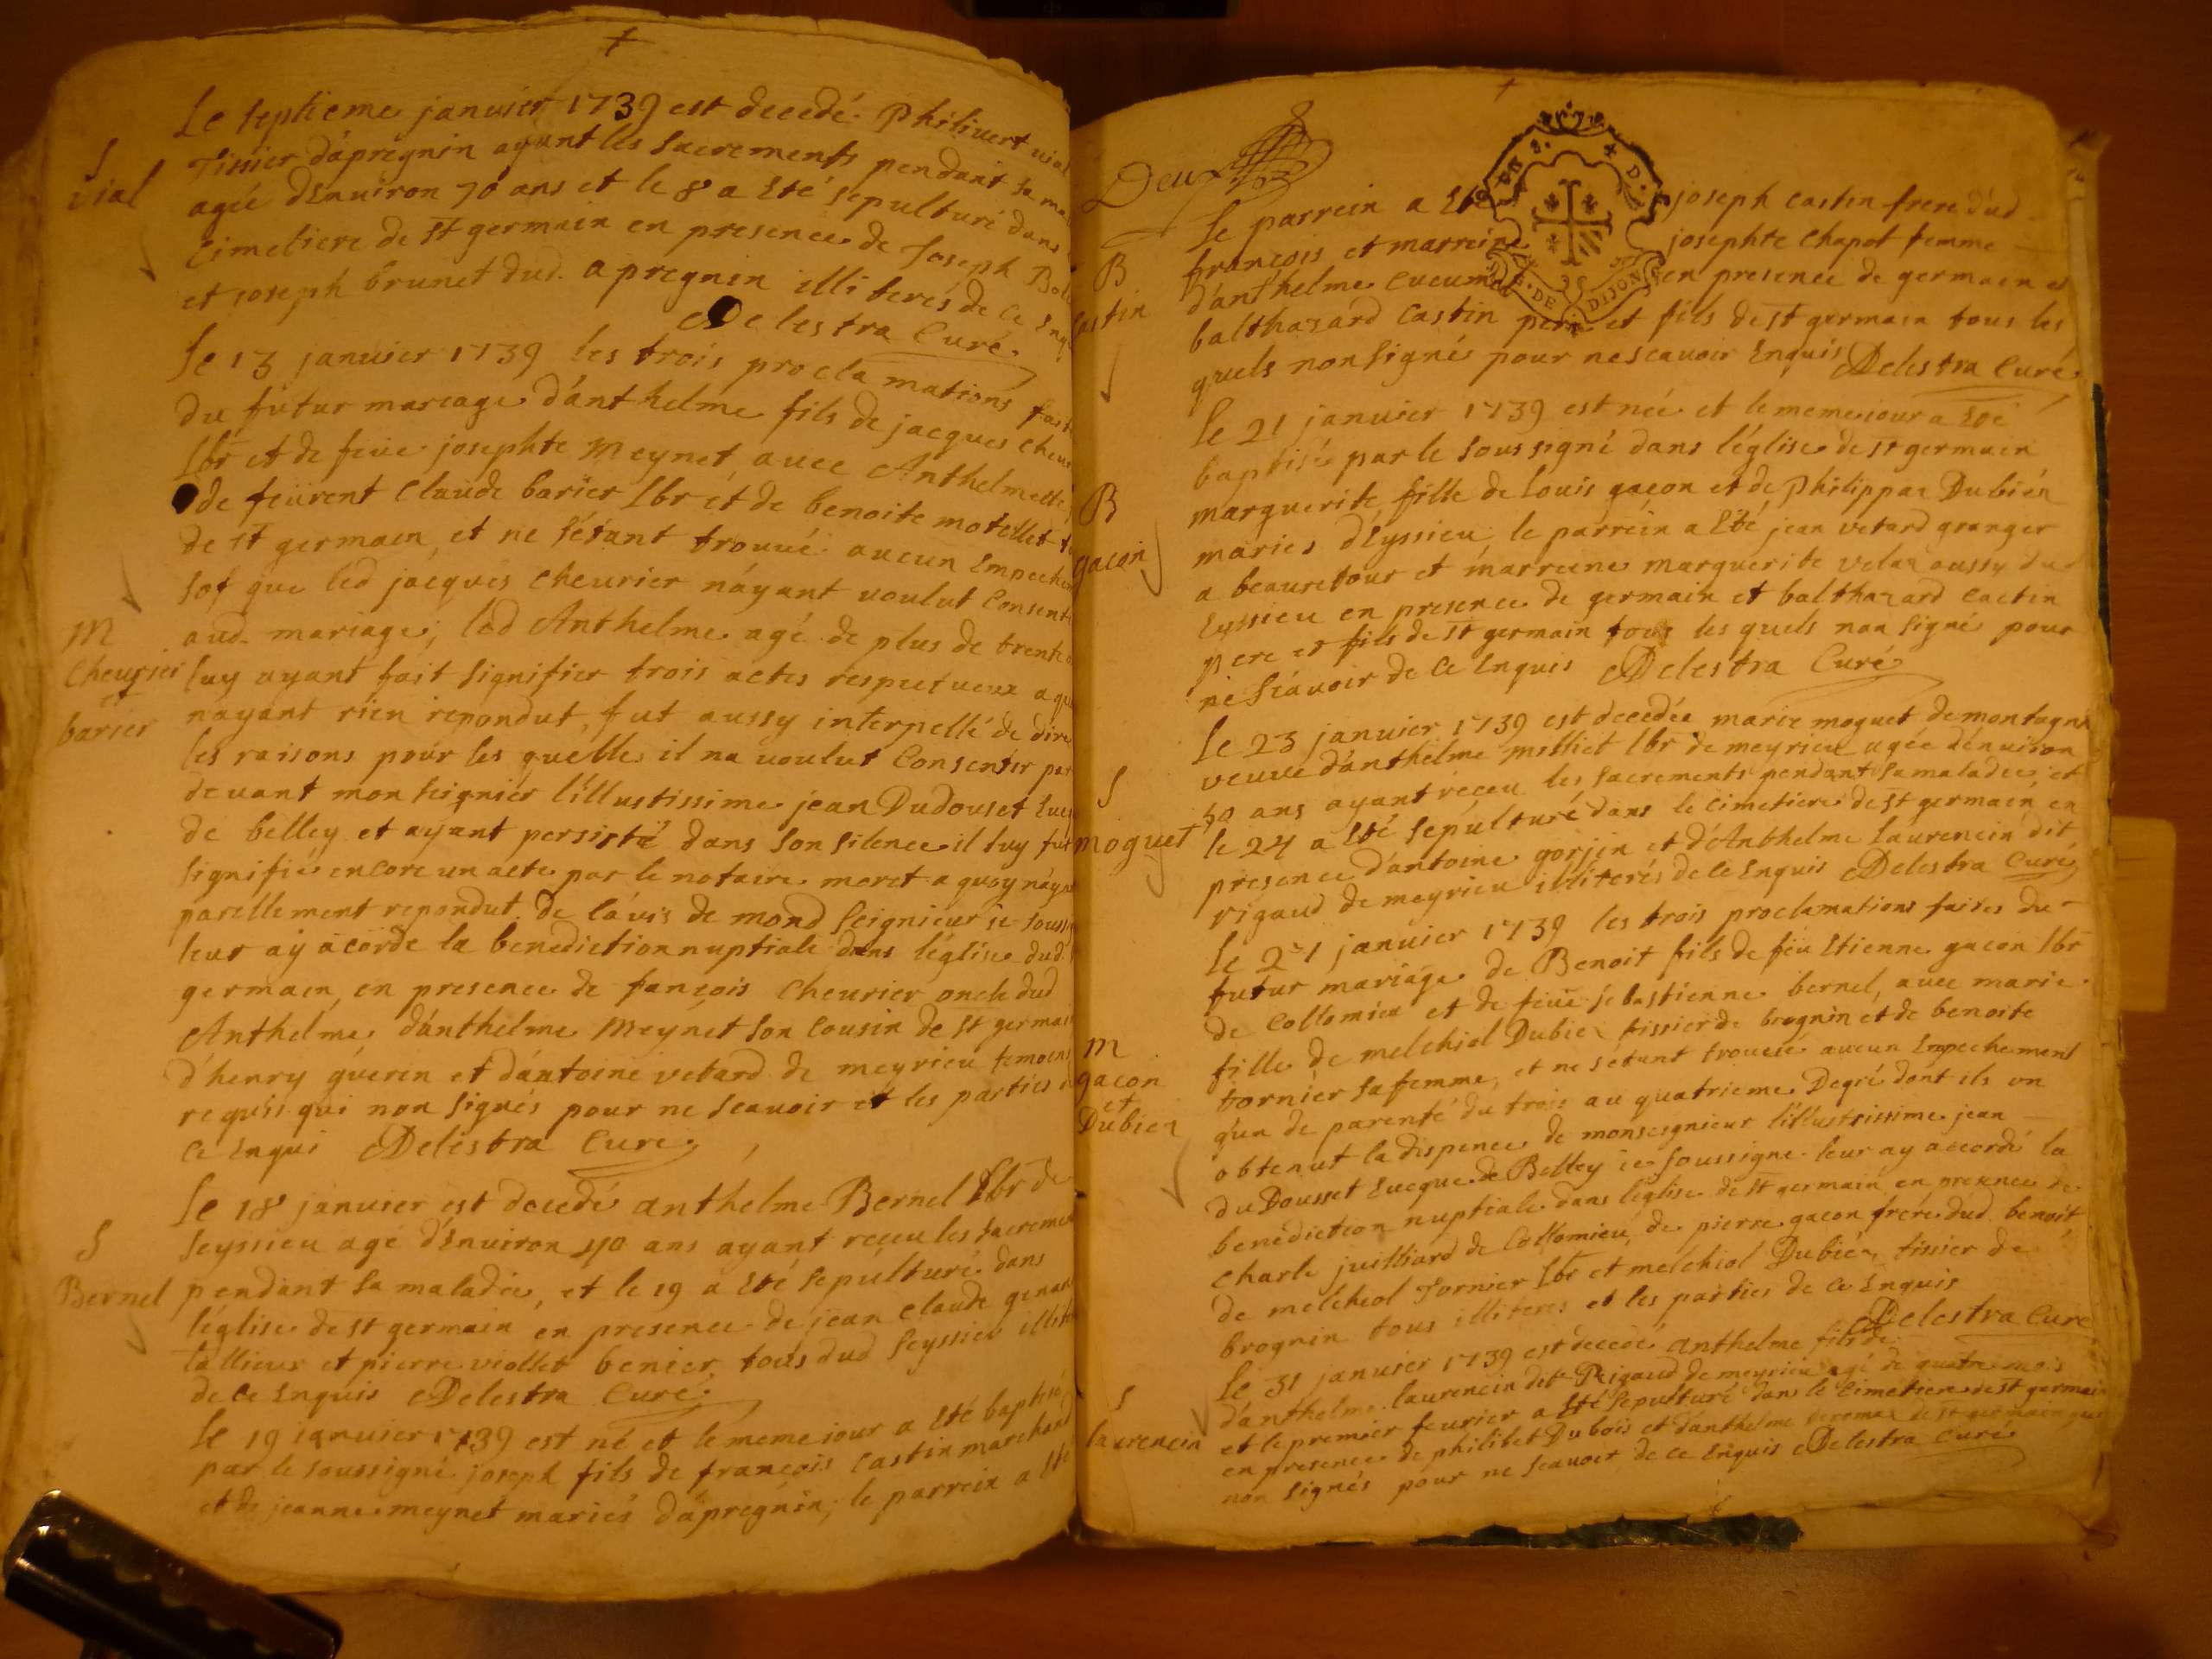 Le septieme janvier 1739 est decedé Philivert vial
S
vial
Tissier dápregnin ayant les sacrements pendant sa
agée dEnviron 70 ans et le 8 a Eté sepulturé dans
Cimetiere de st germain en presence de Joseph
et joseph brunet dud. apregnin illiterés de ce
Delestra Curé
Le 13 janvier 1739 les trois proclamations
du futur mareage dánthelme fils de jacques
lbr et de feüe josephte Meynet, avec Anthelmette
de feürent Claude barier lbr et de benoite motellet
de st germaen, et ne sétant trouvé aucun
sof que led jacques Cheurier náyant voulut
aud. mariage, led Anthelme agé de plus de trente
M
Cheurier
et
barier
luy ayant fait signifier trois actes respectueux
nayant rien repondut, fut aussy interpellé de dire
les raisons pour les quelles il na voulut Consentir
devant monseignier lillustissime jean Dudouset
de belley et ayant persisté dans son silence il luy fut
signifié encore un acte par le notaire moret a quoy
parellement repondut. de lávis de mond seignieur je
leur aÿ acordé la benediction nuptiale dans léglise dud.
germaen, en presence de fançois Cheurier oncle dud
Anthelme, dánthelme Meynet son Cousin de st
d'henry guerin et dántoine vetard de meyrieu temoens
requis qui non signés pour ne scavoir et les parties
ce Enqui Delestra Cure
Le 18 janvier est decedé anthelme Bernel lbr de
S
Bernel
seyssieu agé dÉnviron 40 ans ayant reçeu les
pendant sa maladie, et le 19 a Eté sepulturé dans
l'église de st germain en presence de jean claude
tallieur et pierre viollet benier tous dud seyssieu
de ce Enquis Delestra Curé
Le 19 ianvier 1739 est né et le meme iour a Eté
par le soussigné joseph fils de françois Castin marchand
et de jeanne meynet mariés dápregnin; le parrein a
Deux
Le parrein a Eté joseph castin frere dud
B
Castin
françois et marreine josephte Chapot femme
dánthelme en presence de germaen et
balthazard Castin pere et fils de st germaen tous les
quels non signés pour ne scavoir Enquis Delestra Curé
Le 21 janvier 1739 est née et le meme iour a Eté
B
gacon
baptisée par le soussigné dans léglise de st germain
marguerite fille de Louis gacon et de Philippaz Dubiéz
mariés dEyssieu, le parrein a Eté jean vetard granger
a beauretour et marreine marguerite velaz aussy
Eyssieu en presence de germain et balthazard Castin
pere et fils de st germain tous les quels non signé pour
ne scavoir de ce Enquis Delestra Curé
Le 23 janvier 1739 est decedée marie moguet de
S
moguet
veuve dánthelme milliet lbr de meyrieu agée dénviron
50 ans ayant reçeu les sacrements pendant sa maladie, et
le 24 a Eté sepulturé dans le cimetiere de st germain en
presence dantoine gorjin et dÁnthelme laurencin dit
rigaud de meyrieu illiterés de ce Enquis Delestra Curé
Le 21 janvier 1739 les trois proclamations faites du
futur mariage de Benoit fils de feu Etienne gacon lbr
de Collomieu et de feüe sebastienne bernel, avec marie
fille de melchiol Dubiez tissier de brognin et de benoite
M
gacon
et
Dubiez
tornier sa femme, et ne sétant trouvé aucun Empechement
qun de parenté du trois au quatrieme Degré dont ils on
obtenut la dispence de monseignieur lillustrissime jean
du Dousset Eveque de Belley ie soussigne leur ay accordé la
benediction nuptiale dans léglise de st germain en presence de
Charle juilliard de Collomieu, de pierre gacon frére dud. benoit,
de melcheol Tornier lbr et melchiol Dubiez, tissier de
brognin tous illiteres et les parties de ce Enquis
Delestra Curé
Le 31 janvier 1739 est decedé anthelme fils de
S
laurencin
dánthelme laurencin dit Rigaud de meyrieu agé de quatre mois
et le premier feurier a Eté sepulturé dans le Cimetiere de st germain
en presence de philibet Dubois et danthelme de st germain
non signés pour ne scavoer de ce Enquis Delestra Curé
G. DE DIJON